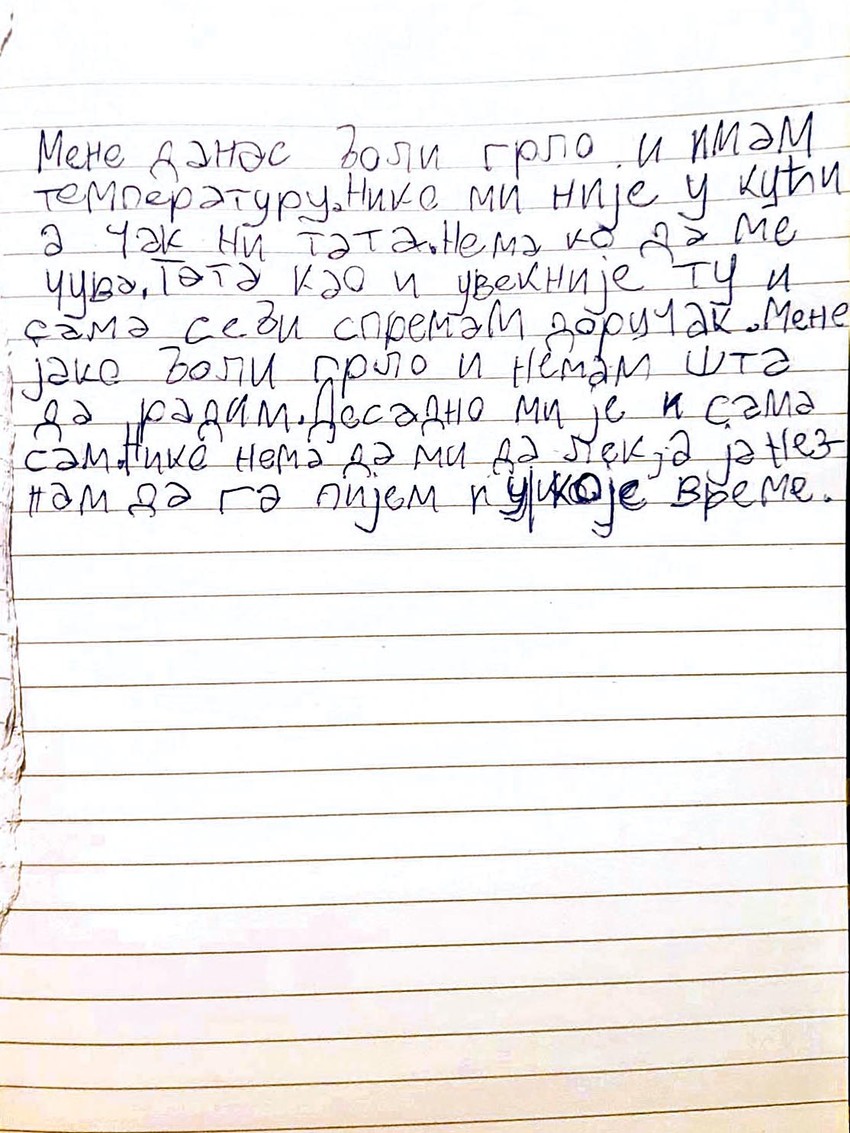 Мене данас боли грло и имам
температуру.Нико ми није у кући
а чак ни тата.Нема ко да ме
чува.Тата као и увекније ту и
сама себи спремам доручак.Мене
јако боли грло и немам шта
да радим.Досадно ми је и сама
сам.Нико нема да ми да лек,а ја нез-
нам да га пијем и у које време.